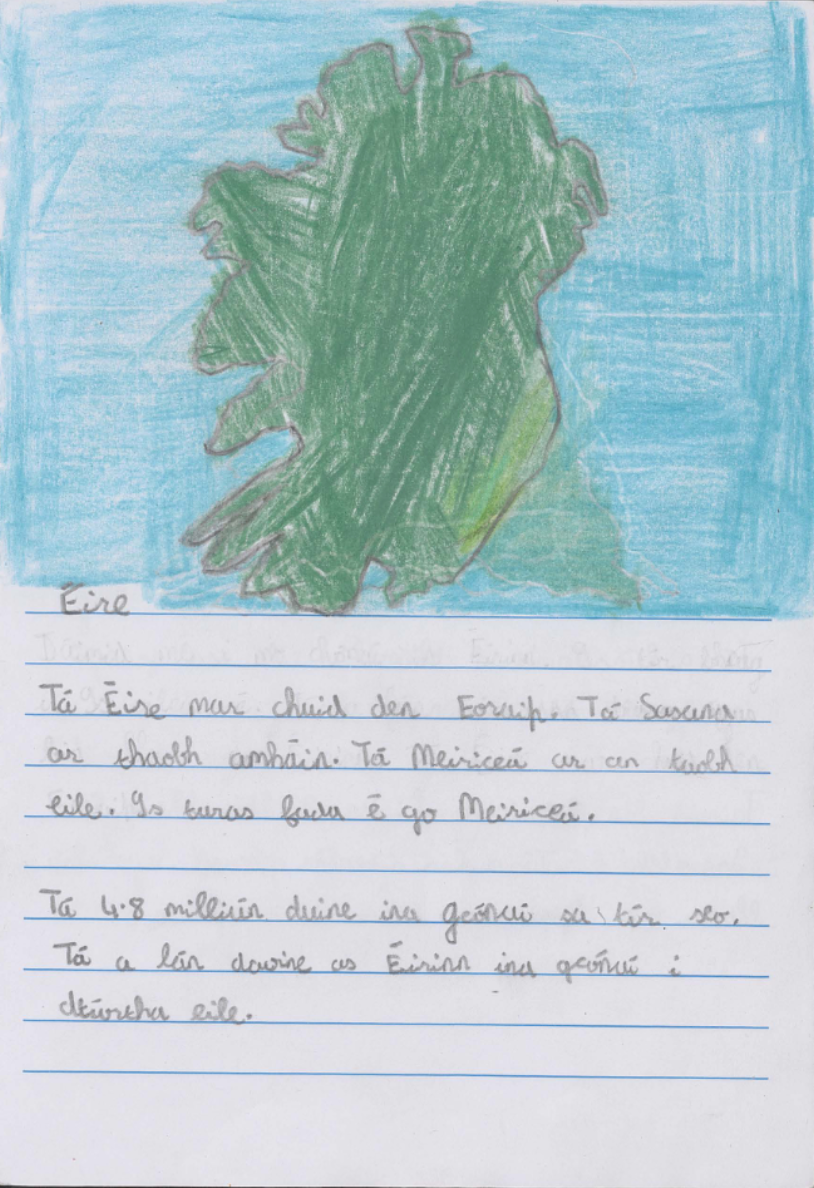 Éire
Tá Éire mar chuid den Eoraip. Tá Sasana
ar thaobh amháin. Tá Meiriceá ar an taobh
eile. Is turas fada é go Meiriceá.
Tá 4.8 milliún duine ina gcónaí sa tír seo.
Tá a lán daoine as Éirinn ina gcónaí i
dtíortha eile.